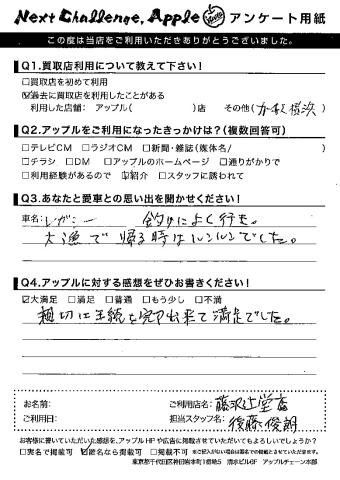 Next Challenge, Apple アンケート用紙
この度は当店をご利用いただきありがとうございました。
Q1.買取店利用について教えて下さい!
□買取店を初めて利用
☑過去に買取店を利用したことがある
利用した店舗: アップル( )店 その他(
Q2.アップルをご利用になったきっかけは?(複数回答可)
□テレビCM □ラジオCM □新聞・雑誌(媒体名/ )
□チラシ □DM □アップルのホームページ □通りがかりで
□利用経験があるので ☑紹介 □スタッフに誘われて
Q3.あなたと愛車との思い出を聞かせください!
車名: レガシー 釣りによく行き。
大漁で帰る時はルンルンでした。
Q4.アップルに対する感想をぜひお書きください!
☑大満足 □満足 □普通 □もう少し □不満
親切に手続を完了出来て満足でした。
お名前: ご利用店名: 藤沢辻堂店
ご利用日: 担当スタッフ名: 後藤俊朗
お客様に書いていただいた感想を、アップルHPや広告に掲載させていただいてもよろしいでしょうか?
□実名で掲載可 ☑匿名なら掲載可 □掲載不可 ※ご記入がない場合は匿名での掲載とさせていただきます。
東京都千代田区神田錦本町1番地5 清水ビル6F アップルチェーン本部